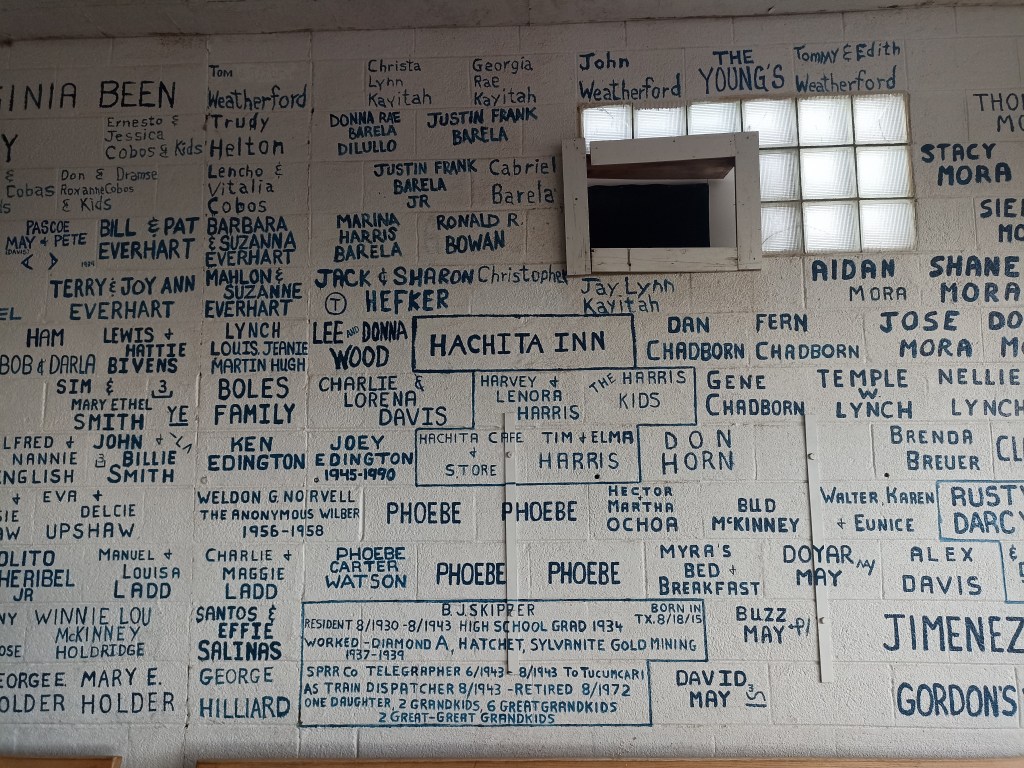 INIA BEEN
Tom
Weatherford
Christa
Lynn
Kayitah
Georgia
Rae
Kayitah
John
Weatherford
THE
YOUNG'S
Tommy & Edith
Weatherford
Ernesto &
Jessica
Cobos & Kids
Trudy
Helton
DONNA RAE
BARELA
DILULLO
JUSTIN FRANK
BARELA
STACY
MORA
Cobas
Don & Dramse
Roxanne Cobos
& Kids
Lencho &
Vitalia
Cobos
JUSTIN FRANK
BARELA
JR
Cabriel
Barela
PASCOE
MAY & PETE
(DAVIS)
BILL & PAT
EVERHART
BARBARA
& SUZANNA
EVERHART
MARINA
HARRIS
BARELA
RONALD R.
BOWAN
TERRY & JOY ANN
EVERHART
MAHLON &
SUZANNE
EVERHART
JACK & SHARON
T HEFKER
Christopher
Jay Lynn
Kayitah
AIDAN
MORA
SHANE
MORA
HAM
BOB & DARLA
LEWIS +
HATTIE
BIVENS
LYNCH
LOUIS, JEANIE
MARTIN HUGH
LEE AND DONNA
WOOD
HACHITA INN
DAN
CHADBORN
FERN
CHADBORN
JOSE
MORA
SIM &
MARY ETHEL
SMITH
YE
BOLES
FAMILY
CHARLIE &
LORENA
DAVIS
HARVEY &
LENORA
HARRIS
THE HARRIS
KIDS
GENE
CHADBORN
TEMPLE
W.
LYNCH
NELLIE
LYNCH
LFRED +
NANNIE
NGLISH
JOHN +
BILLIE
SMITH
KEN
EDINGTON
JOEY
EDINGTON
1945-1990
HACHITA CAFE
&
STORE
TIM & ELMA
HARRIS
DON
HORN
BRENDA
BREUER
EVA +
DELCIE
UPSHAW
WELDON G. NORVELL
THE ANONYMOUS WILBER
1956-1958
PHOEBE
PHOEBE
HECTOR
MARTHA
OCHOA
BUD
McKINNEY
WALTER, KAREN
+ EUNICE
RUSTY
DARCY
OLITO
HERIBEL
JR
MANUEL +
LOUISA
LADD
CHARLIE +
MAGGIE
LADD
PHOEBE
CARTER
WATSON
PHOEBE
PHOEBE
MYRA'S
BED &
BREAKFAST
DOYAR
MAY
ALEX
DAVIS
WINNIE LOU
McKINNEY
HOLDRIDGE
SANTOS &
EFFIE
SALINAS
B.J. SKIPPER
BORN IN
TX. 8/18/15
RESIDENT 8/1930-8/1943 HIGH SCHOOL GRAD 1934
WORKED-DIAMOND A, HATCHET, SYLVANITE GOLD MINING
1937-1939
BUZZ
MAY
JIMENEZ
EORGE E.
OLDER
MARY E.
HOLDER
GEORGE
HILLIARD
SPRR CO TELEGRAPHER 6/1943-8/1943 TO TUCUMCARI
AS TRAIN DISPATCHER 8/1943-RETIRED 8/1972
ONE DAUGHTER, 2 GRANDKIDS, 6 GREAT GRANDKIDS
2 GREAT-GREAT GRANDKIDS
DAVID
MAY
GORDON'S